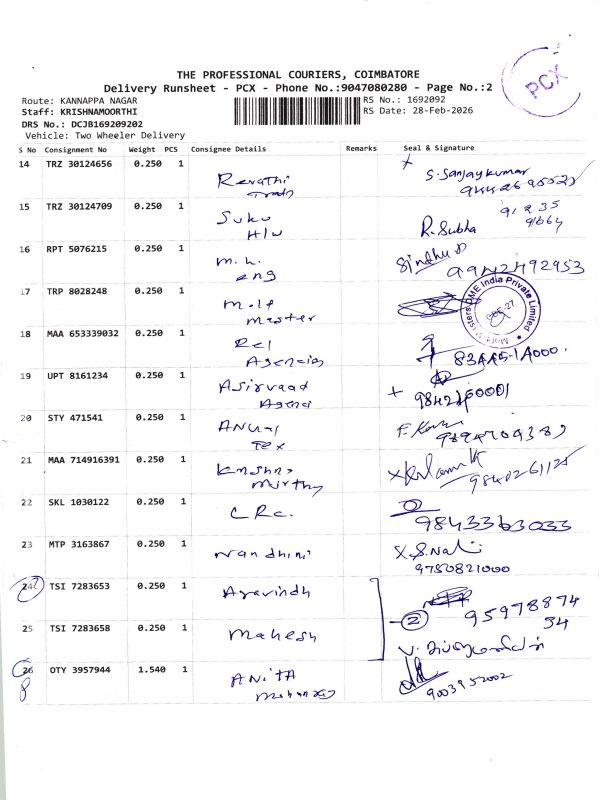 THE PROFESSIONAL COURIERS, COIMBATORE
Delivery Runsheet - PCX - Phone No.:9047080280 - Page No.:2
PCX
Route: KANNAPPA NAGAR
RS No.: 1692092
Staff: KRISHNAMOORTHI
RS Date: 28-Feb-2026
DRS No.: DCJB169209202
Vehicle: Two Wheeler Delivery
S No Consignment No Weight PCS Consignee Details Remarks Seal & Signature
14 TRZ 30124656 0.250 1 Revathi S. Sanjaykumar
15 TRZ 30124709 0.250 1 Suku H/W R. Subha
16 RPT 5076215 0.250 1 M.K. eng Sindhu 9942492953
17 TRP 8028248 0.250 1 master India Private Limited
18 MAA 653339032 0.250 1 Agencies
19 UPT 8161234 0.250 1 Asirvaad
20 STY 471541 0.250 1 Tex
21 MAA 714916391 0.250 1 Krishna Murthy
22 SKL 1030122 0.250 1 CRC. 9843363033
23 MTP 3163867 0.250 1 Nandhini 9750821000
24 TSI 7283653 0.250 1 Aravindh 2 95978874 34
25 TSI 7283658 0.250 1 Mahesh
26 OTY 3957944 1.540 1 ANITA 9003952002
8